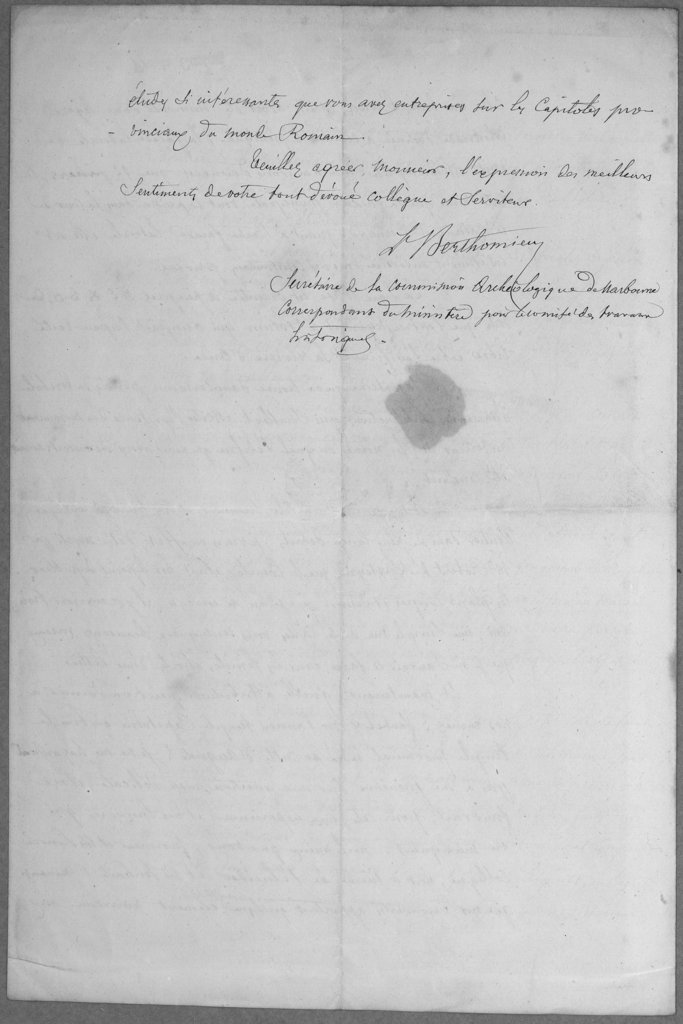 études si intéressantes que vous avez entreprises sur les Capitoles pro-
-vinciaux du monde Romain.
Veuillez agréer, Monsieur, l'expression des meilleurs
Sentiments de votre tout dévoué Collègue et Serviteur.
L. Berthomieu
Secrétaire de la Commission Archéologique de Narbonne
Correspondant du ministère pour le comité des travaux
historiques.